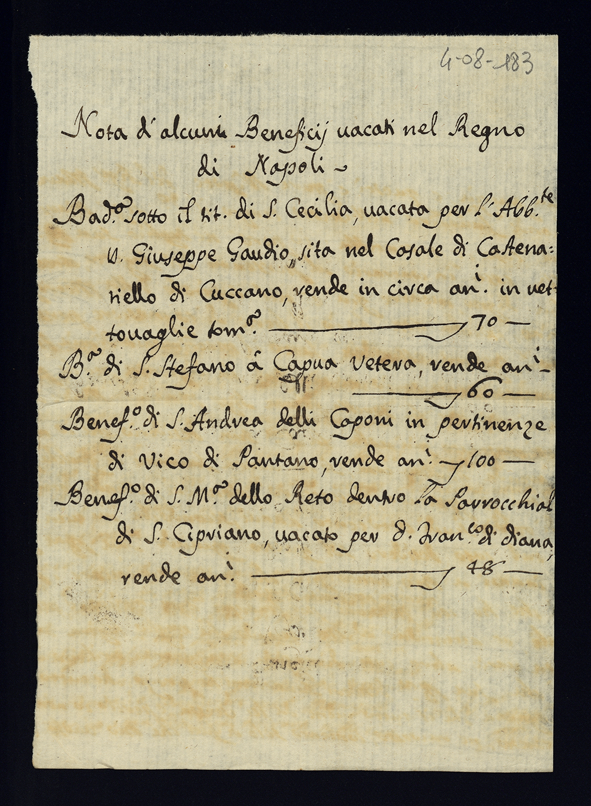 4-08-183
Nota d'alcuni Beneficij vacati nel Regno
di Napoli
Bad.ª sotto il tit. di S. Cecilia, vacata per l'Abb.te
D. Giuseppe Gaudio, sita nel Casale di Castena=
niello di Cuccano, rende in circa an.i in vet-
touaglie tom.ª — 70 —
B.ª di S. Stefano à Capua Vetera, rende an.i —
— 60 —
Benef.o di S. Andrea delli Caponi in pertinenze
di Vico di Pantano, rende an.i — 100 —
Benef.o di S. M.ª dello Reto dentro la Parrocchial
di S. Cipriano, vacato per d. Fran.co di diana,
rende an.i — 48 —